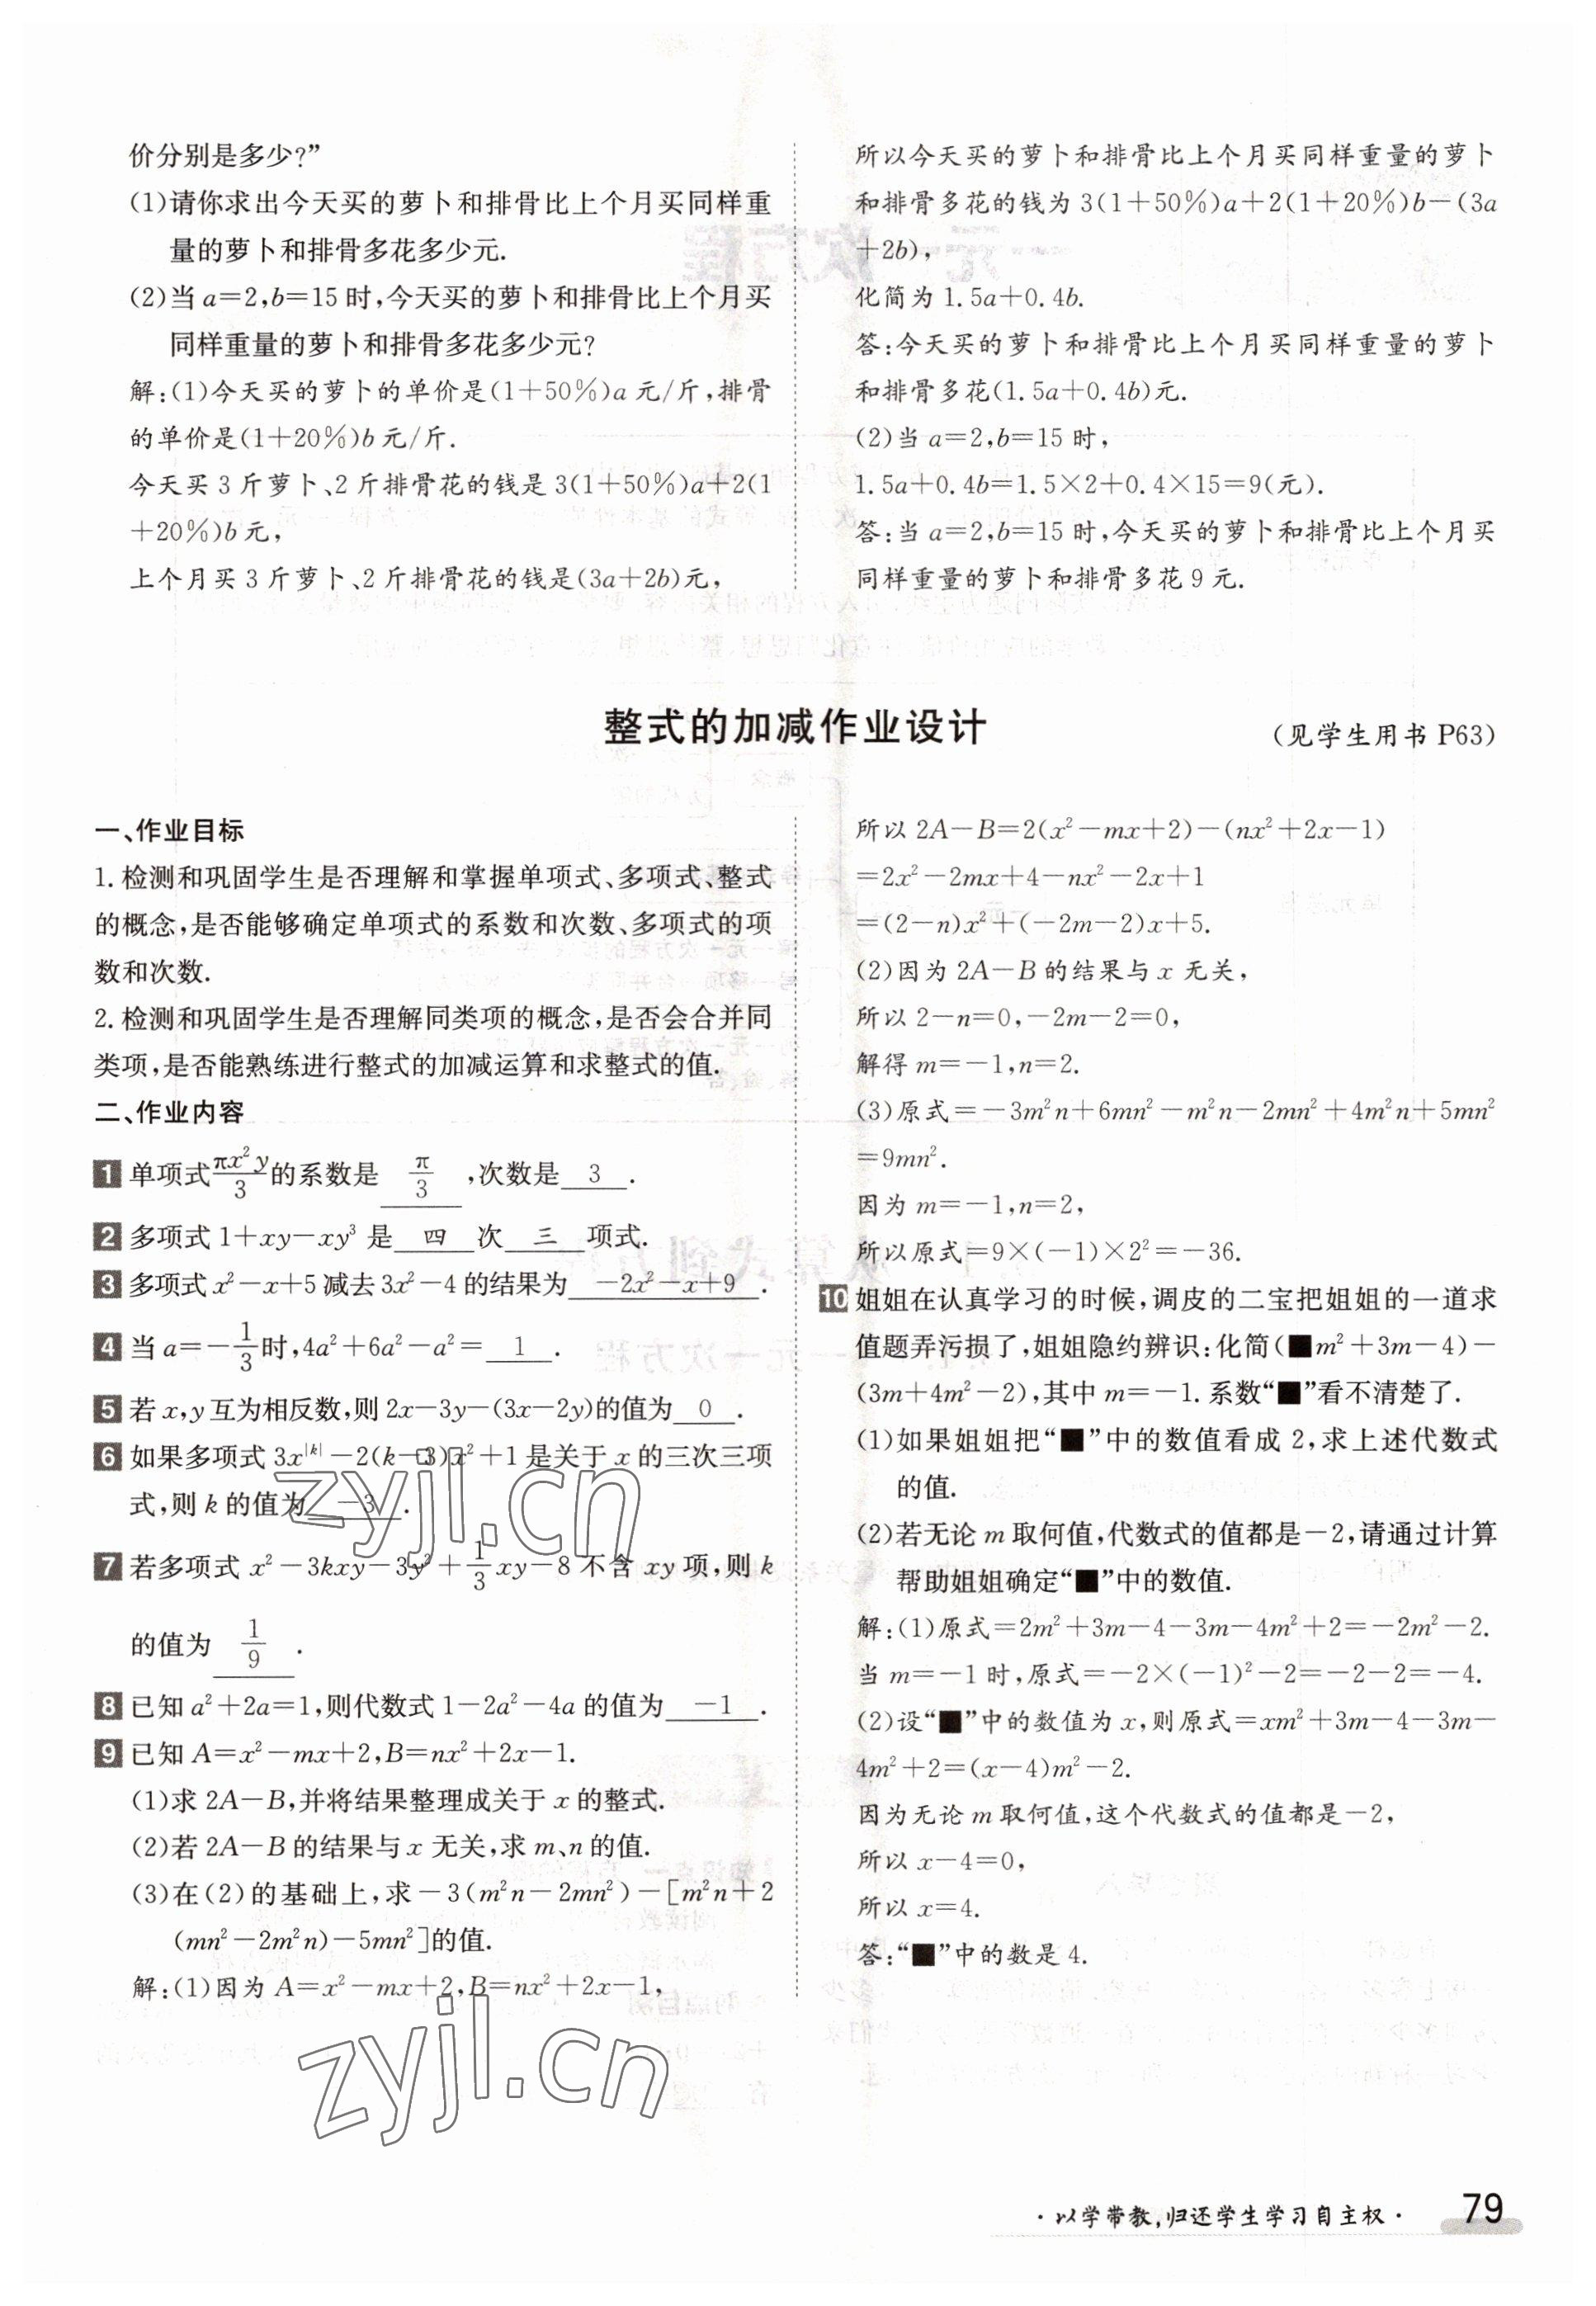 价分别是多少?”
(1)请你求出今天买的萝卜和排骨比上个月买同样重
量的萝卜和排骨多花多少元.
(2)当 a=2,b=15 时,今天买的萝卜和排骨比上个月买
同样重量的萝卜和排骨多花多少元?
解:(1)今天买的萝卜的单价是(1+50%)a 元/斤,排骨
的单价是(1+20%)b 元/斤.
今天买 3 斤萝卜、2 斤排骨花的钱是 3(1+50%)a+2(1
+20%)b 元,
上个月买 3 斤萝卜、2 斤排骨花的钱是(3a+2b)元,
所以今天买的萝卜和排骨比上个月买同样重量的萝卜
和排骨多花的钱为 3(1+50%)a+2(1+20%)b-(3a
+2b),
化简为 1.5a+0.4b.
答:今天买的萝卜和排骨比上个月买同样重量的萝卜
和排骨多花(1.5a+0.4b)元.
(2)当 a=2,b=15 时,
1.5a+0.4b=1.5×2+0.4×15=9(元).
答:当 a=2,b=15 时,今天买的萝卜和排骨比上个月买
同样重量的萝卜和排骨多花 9 元.
整式的加减作业设计
(见学生用书 P63)
一、作业目标
1.检测和巩固学生是否理解和掌握单项式、多项式、整式
的概念,是否能够确定单项式的系数和次数、多项式的项
数和次数.
2.检测和巩固学生是否理解同类项的概念,是否会合并同
类项,是否能熟练进行整式的加减运算和求整式的值.
二、作业内容
1 单项式πx²y/3的系数是 π/3 ,次数是 3 .
2 多项式 1+xy-xy³ 是 四 次 三 项式.
3 多项式 x²-x+5 减去 3x²-4 的结果为 -2x²-x+9 .
4 当 a=-1/3时,4a²+6a²-a²= 1 .
5 若 x,y 互为相反数,则 2x-3y-(3x-2y)的值为 0 .
6 如果多项式 3x^|k|-2(k-3)x²+1 是关于 x 的三次三项
式,则 k 的值为 -3 .
7 若多项式 x²-3kxy-3y²+1/3xy-8 不含 xy 项,则 k
的值为 1/9 .
8 已知 a²+2a=1,则代数式 1-2a²-4a 的值为 -1 .
9 已知 A=x²-mx+2,B=nx²+2x-1.
(1)求 2A-B,并将结果整理成关于 x 的整式.
(2)若 2A-B 的结果与 x 无关,求 m、n 的值.
(3)在(2)的基础上,求-3(m²n-2mn²)-[m²n+2
(mn²-2m²n)-5mn²]的值.
解:(1)因为 A=x²-mx+2,B=nx²+2x-1,
所以 2A-B=2(x²-mx+2)-(nx²+2x-1)
=2x²-2mx+4-nx²-2x+1
=(2-n)x²+(-2m-2)x+5.
(2)因为 2A-B 的结果与 x 无关,
所以 2-n=0,-2m-2=0,
解得 m=-1,n=2.
(3)原式=-3m²n+6mn²-m²n-2mn²+4m²n+5mn²
=9mn².
因为 m=-1,n=2,
所以原式=9×(-1)×2²=-36.
10 姐姐在认真学习的时候,调皮的二宝把姐姐的一道求
值题弄污损了,姐姐隐约辨识:化简(■m²+3m-4)-
(3m+4m²-2),其中 m=-1.系数“■”看不清楚了.
(1)如果姐姐把“■”中的数值看成 2,求上述代数式
的值.
(2)若无论 m 取何值,代数式的值都是-2,请通过计算
帮助姐姐确定“■”中的数值.
解:(1)原式=2m²+3m-4-3m-4m²+2=-2m²-2.
当 m=-1 时,原式=-2×(-1)²-2=-2-2=-4.
(2)设“■”中的数值为 x,则原式=xm²+3m-4-3m-
4m²+2=(x-4)m²-2.
因为无论 m 取何值,这个代数式的值都是-2,
所以 x-4=0,
所以 x=4.
答:“■”中的数是 4.
zyjl.cn
zyjl.cn
·以学带教,归还学生学习自主权·
79